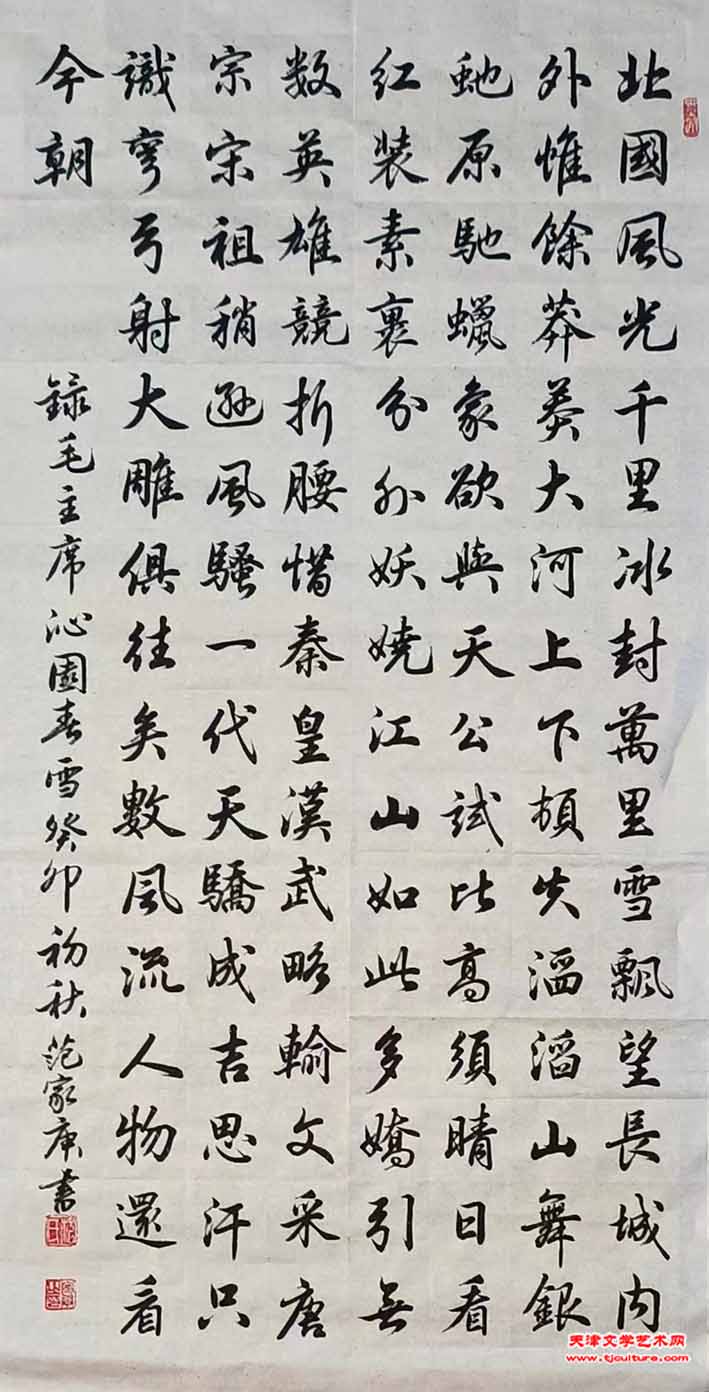 北國風光千里冰封萬里雪飄望長城内
外惟餘莽莽大河上下頓失滔滔山舞銀
虵原馳蠟象欲與天公試比高須晴日看
红装素裹分外妖娆江山如此多嬌引無
数英雄競折腰惜秦皇漢武略輸文采唐
宗宋祖稍遜風騷一代天驕成吉思汗只
識彎弓射大雕俱往矣數風流人物還看
今朝
録毛主席沁園春雪癸卯初秋范家庚書
天津文学艺术网
www.tjculture.com